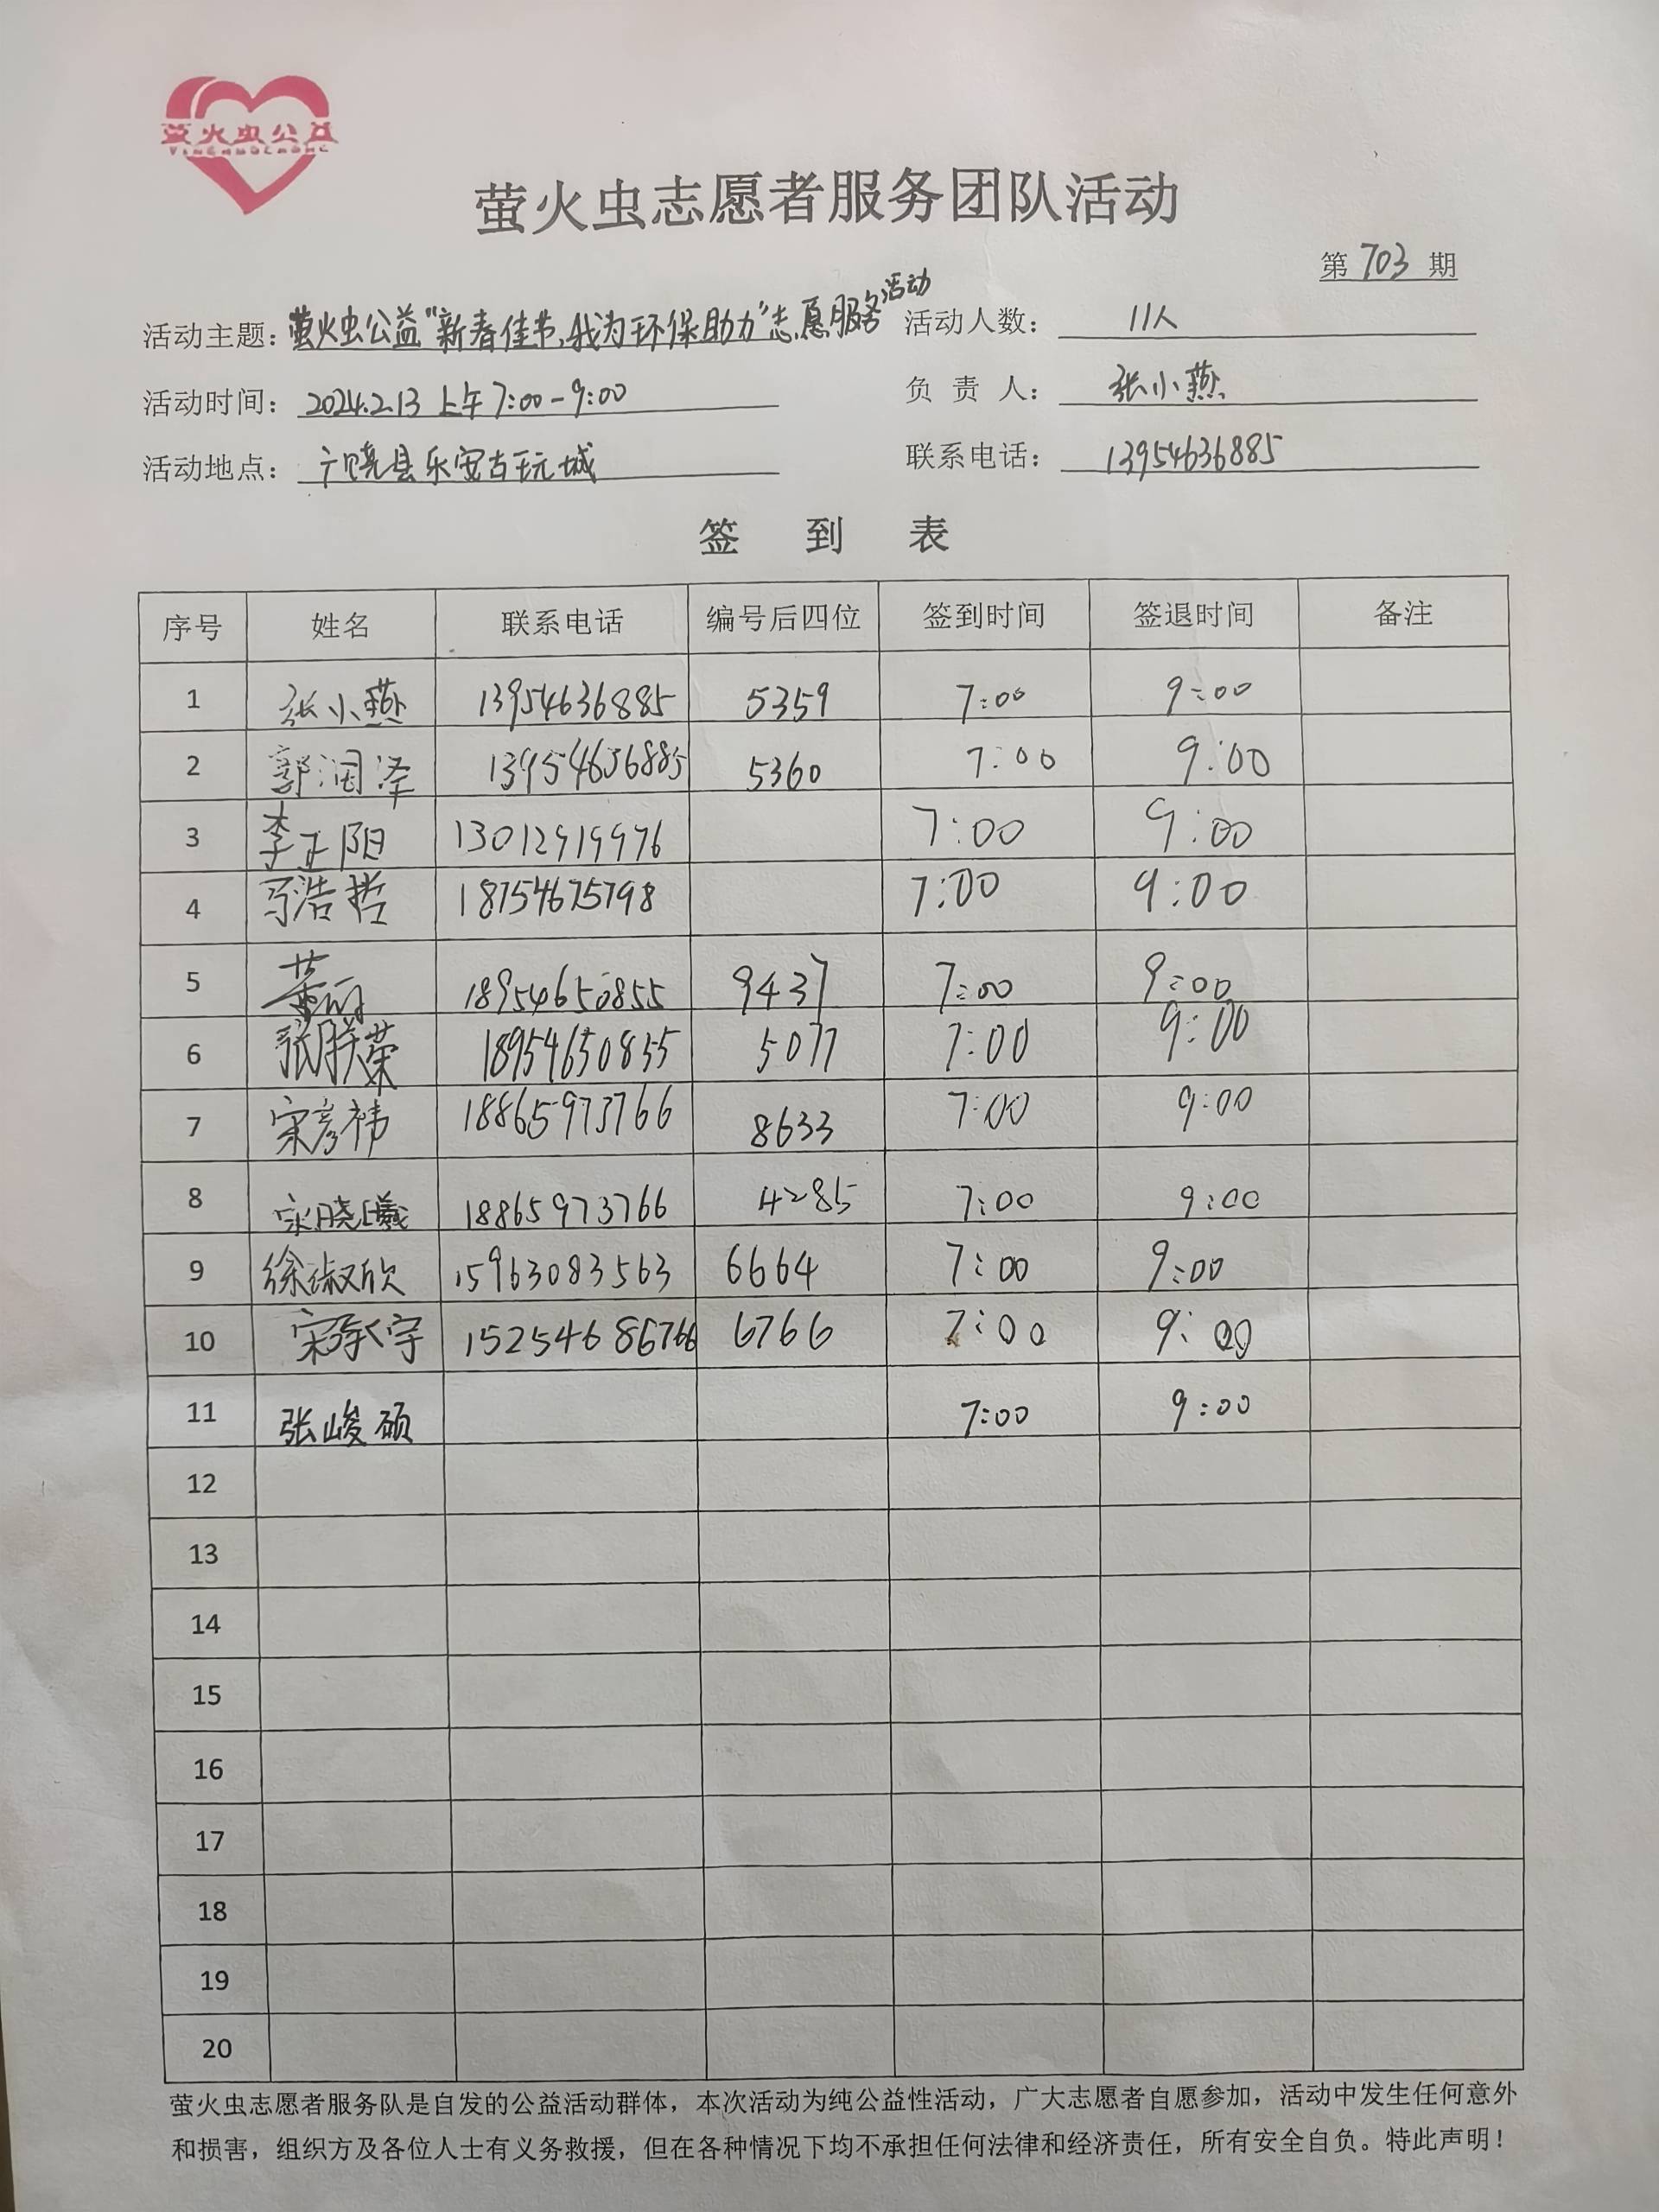 萤火虫公益
YINGHUOCHONG
萤火虫志愿者服务团队活动
第 703 期
活动主题：萤火虫公益“新春佳节,我为环保助力”志愿服务活动 活动人数： 11人
活动时间： 2024.2.13 上午 7:00-9:00 负 责 人： 张小燕
活动地点： 广饶县乐安古玩城 联系电话： 13954636885
签 到 表
序号 姓名 联系电话 编号后四位 签到时间 签退时间 备注
1 张小燕 13954636885 5359 7:00 9:00
2 郭润泽 13954636885 5360 7:00 9:00
3 李正阳 13012919976 7:00 9:00
4 马浩哲 18754675798 7:00 9:00
5 18954650855 9437 7:00 9:00
6 张朕荣 18954650855 5077 7:00 9:00
7 宋彦祎 18865973766 8633 7:00 9:00
8 宋晓曦 18865973766 4285 7:00 9:00
9 徐淑欣 15963083563 6664 7:00 9:00
10 15254686766 6766 7:00 9:00
11 张峻硕 7:00 9:00
12
13
14
15
16
17
18
19
20
萤火虫志愿者服务队是自发的公益活动群体，本次活动为纯公益性活动，广大志愿者自愿参加，活动中发生任何意外
和损害，组织方及各位人士有义务救援，但在各种情况下均不承担任何法律和经济责任，所有安全自负。特此声明！